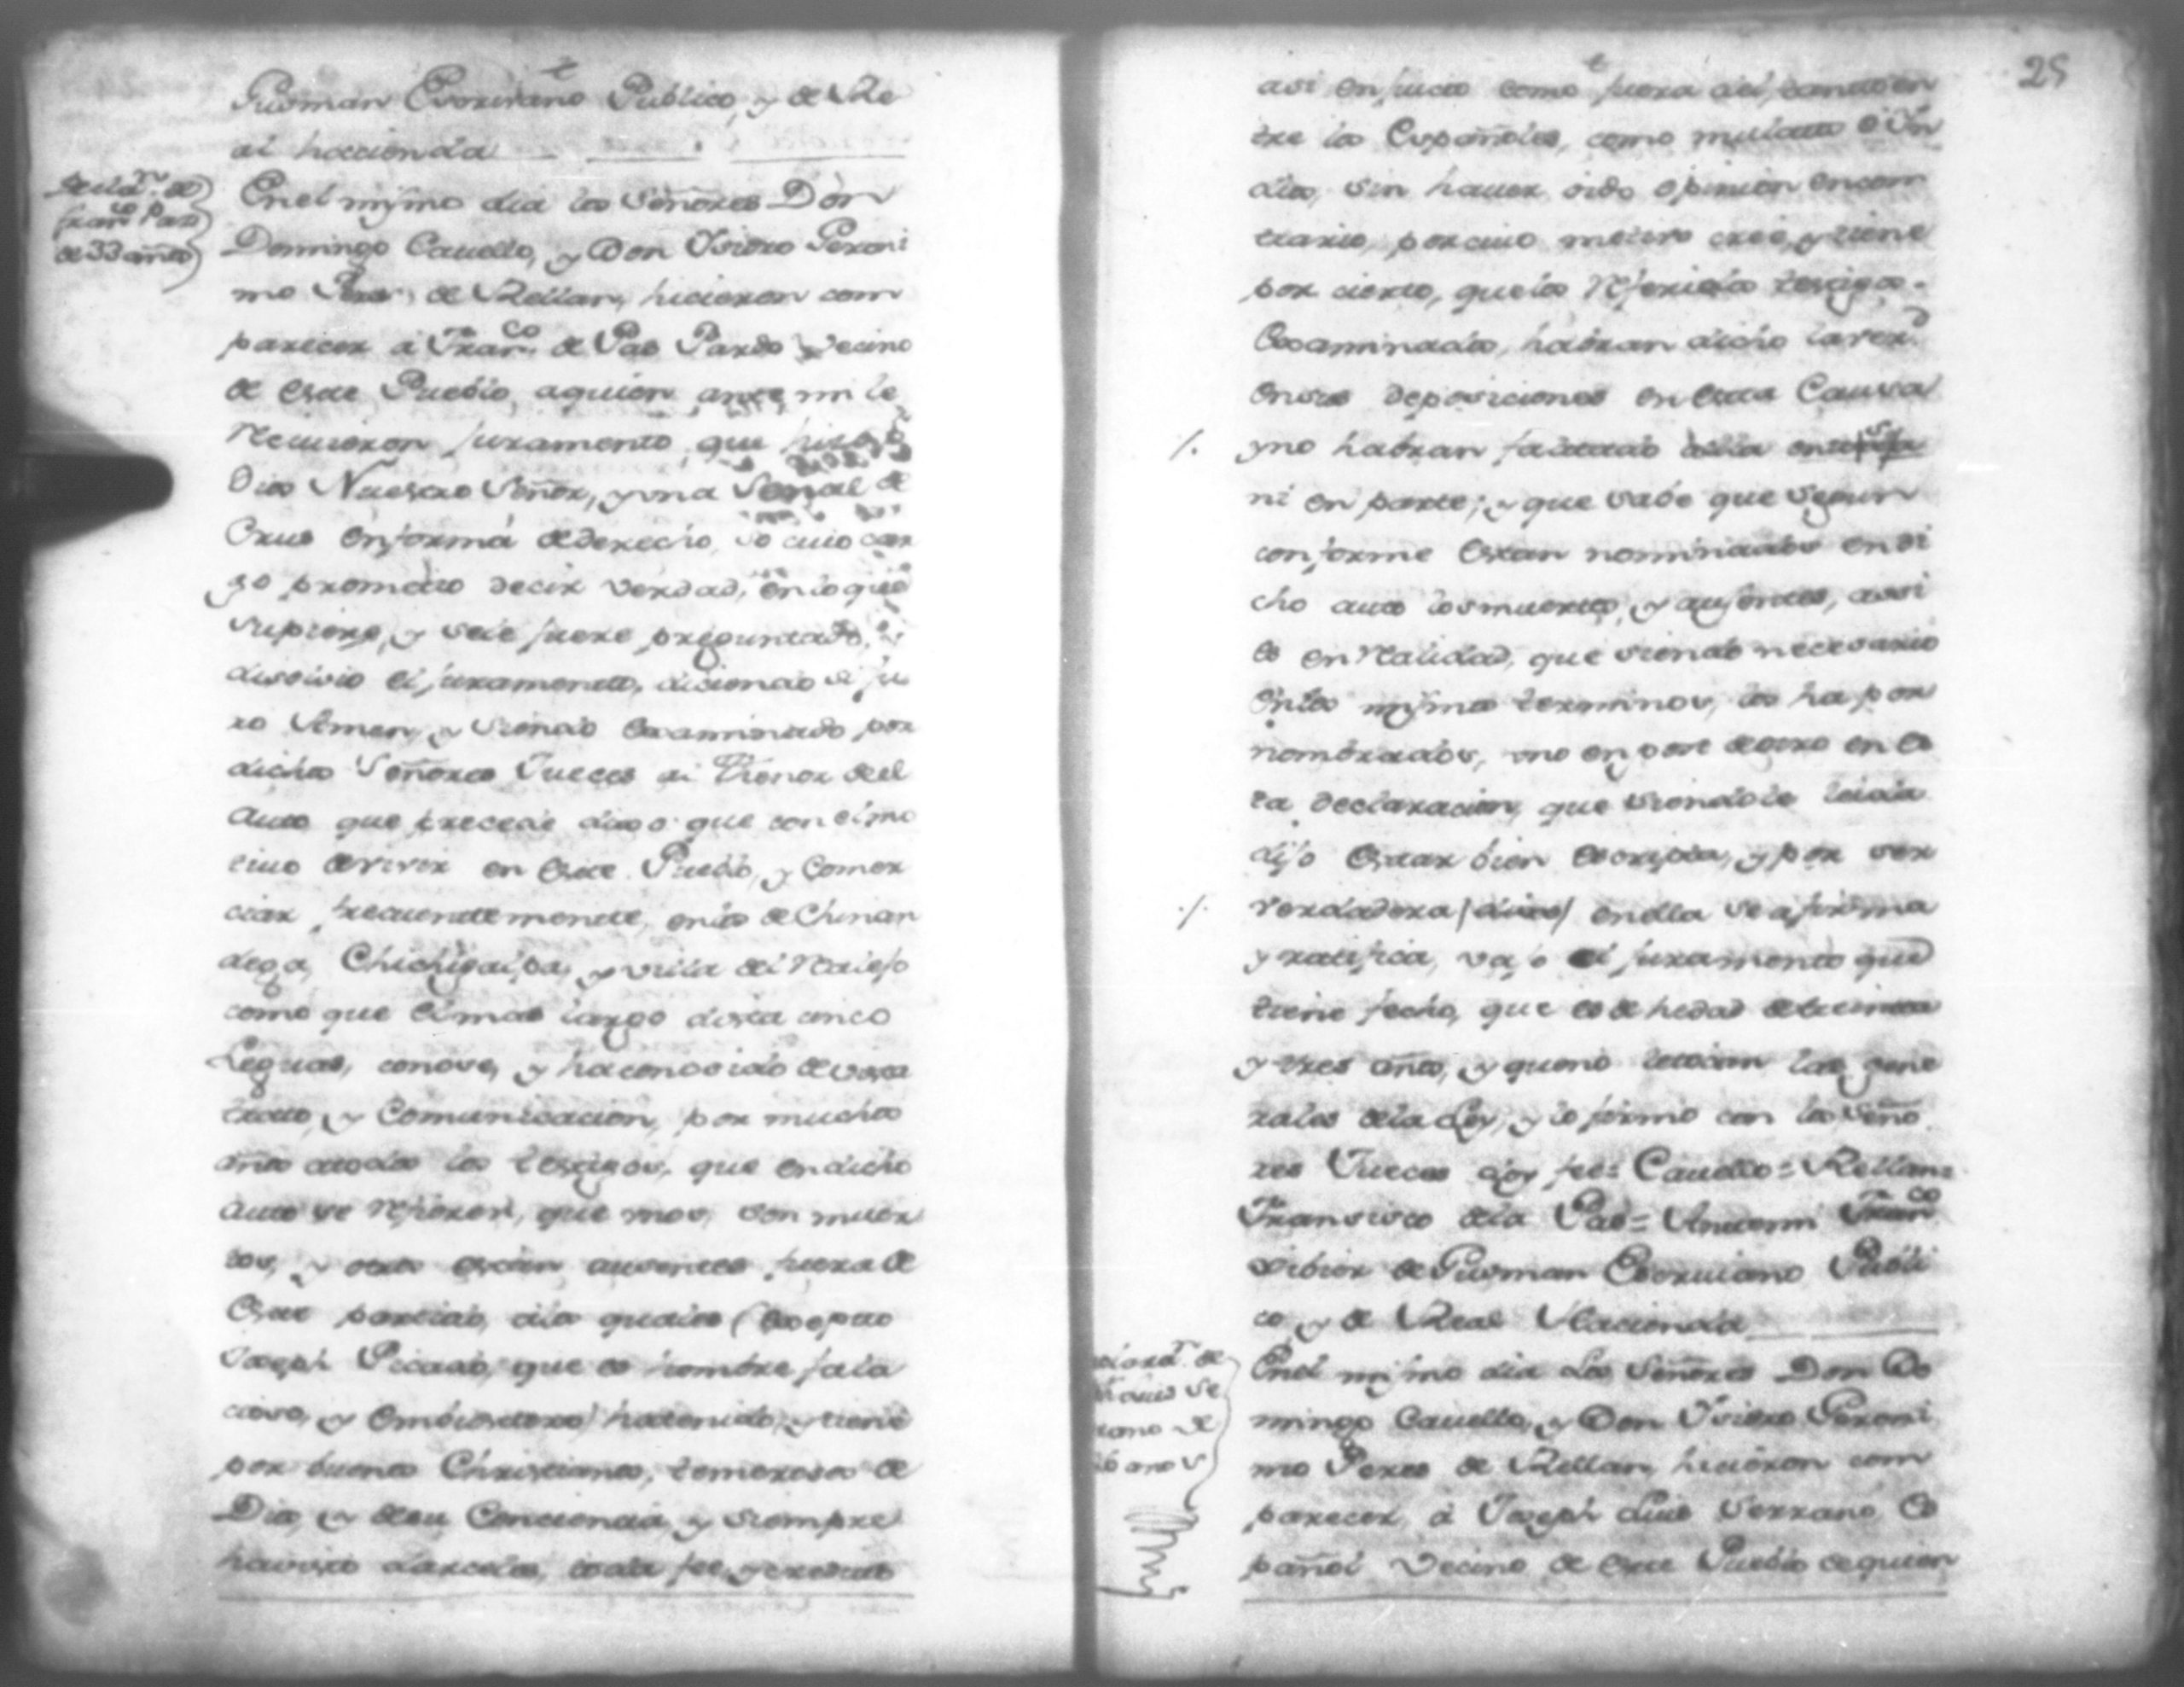 Gusman Escrivano Publico, y de Re
al hacienda
Declaⁿ. de
Franᶜᵒ Paz
de 33 años
En el mismo dia los Señores Don
Domingo Cauello, y Don Ysidro Geroni
mo Peres de Rellan, hicieron com
parecer a Franᶜᵒ de Pas Pardo Vecino
de este Pueblo, aquien ante mi le
Recivieron juramento, que hizo
Dios Nuestro Señor, y una Señal de
Crus en forma de derecho, so cuio car
go prometio decir Verdad, en lo que
Supiere, y sele fuere preguntado,
disolvio el juramento, diciendo si ju
ro Amen, y Siendo Examinado por
dichos Señores Jueces al Thenor del
Auto que precede dixo que con el mo
tivo de vivir en este Pueblo, y Comer
ciar frequentemente, en los de Chinan
dega, Chichigalpa, y villa del Realejo
como que el mas largo dista cinco
Leguas, conose, y ha conosido de vista
trato, y Comunicacion, por muchos
años atodos los testigos, que en dicho
Auto se Refieren, que unos, son muer
tos, y otros estan ausentes fuera de
este partido, alos quales (Excepto
Joseph Picado, que es hombre fala
cioso, y Embustero) ha tenido, y tiene
por buenos Christianos, temerosos de
Dios, y desu Conciencia, y siempre
ha visto darceles, toda fee, y credito
25
asi en juicio como fuera de el, tanto en
tre los Españoles, como mulatos e Yn
dios, sin hauer oido opinion encon
trario, por cuio motivo cree, y tiene
por cierto, que los Referidos testigos
Examinados, habran dicho la verᵈ
en sus deposiciones en esta Causa
y no habran faltado a ella
ni en parte; y que sabe que segun
conforme estan nominados en di
cho auto los muertos, y ausentes, assi
es en Realidad, que siendo necesario
en los mismos terminos, los ha por
nombrados, uno en pos de otro en es
ta declaracion, que siendole leida
dijo estar bien escripta, y por ser
verdadera (dixo) en ella se afirma
y ratifica, vajo el juramento que
tiene fecho, que es de hedad de treinta
y tres años, y que no le tocan las gene
rales dela Ley, y lo firmo con los Seño
res Jueces doy fee = Cauello = Rellan =
Fransisco dela Pas = Antemi Franᶜᵒ
de Gusman Escriviano Publi
co, y de Real Hacienda
En el mismo dia Los Señores Don Do
mingo Cauello, y Don Ysidro Geroni
mo Peres de Rellan, hicieron com
parecer, a Joseph Luis Serrano, Es
pañol Vecino de este Pueblo de quien